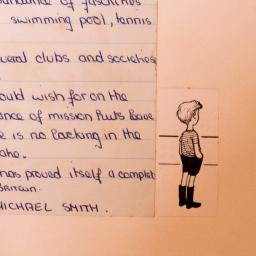 of facilities
swimming pool, tennis
clubs and societies
ould wish for on the
ance of mission huts have
e is no lacking in the
has proved itself a complet
Britain.
MICHAEL SMITH.